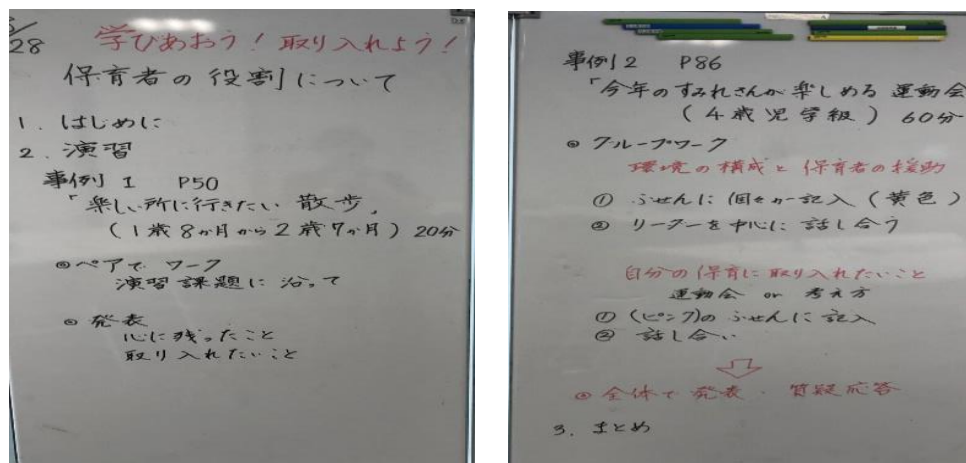 /28 学びあおう！取り入れよう！
保育者の役割について
1. はじめに
2. 演習
事例1 P50
「楽しい所に行きたい 散歩」
(1歳8か月から2歳7か月) 20分
◎ペアでワーク
演習課題に沿って
◎発表
心に残ったこと
取り入れたいこと
事例2 P86
「今年のすみれさんが楽しめる 運動会
(4歳児学級) 60分
◎グループワーク
環境の構成と保育者の援助
① ふせんに個々が記入(黄色)
② リーダーを中心に話し合う
自分の保育に取り入れたいこと
運動会 or 考え方
① (ピンク)のふせんに記入
② 話し合い
◎全体で発表・質疑応答
3. まとめ